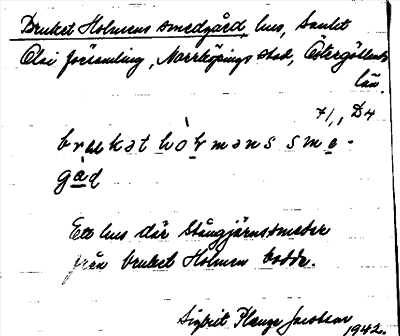 Bruket Holmens smedgård, hus, Sankt
Olai församling, Norrköpings stad, Östergötlands
län.
71,, D4
brukat hòlmans sme-
gàd
Ett hus där stångjärnssmeder
från bruket Holmen bodde.
Sigbrit Plange Jacobson
1942.